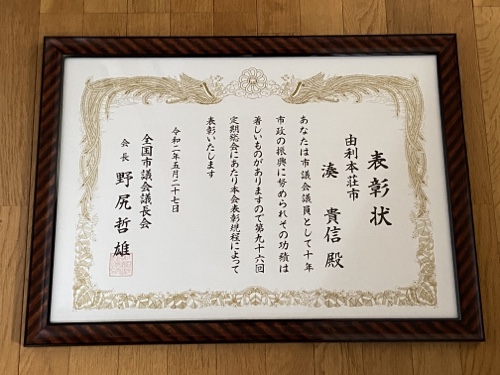 表彰状
由利本荘市
湊 貴信 殿
あなたは市議会議員として十年
市政の振興に努められその功績は
著しいものがありますので第九十六回
定期総会にあたり本会表彰規程によって
表彰いたします
令和二年五月二十七日
全国市議会議長会
会長 野尻哲雄